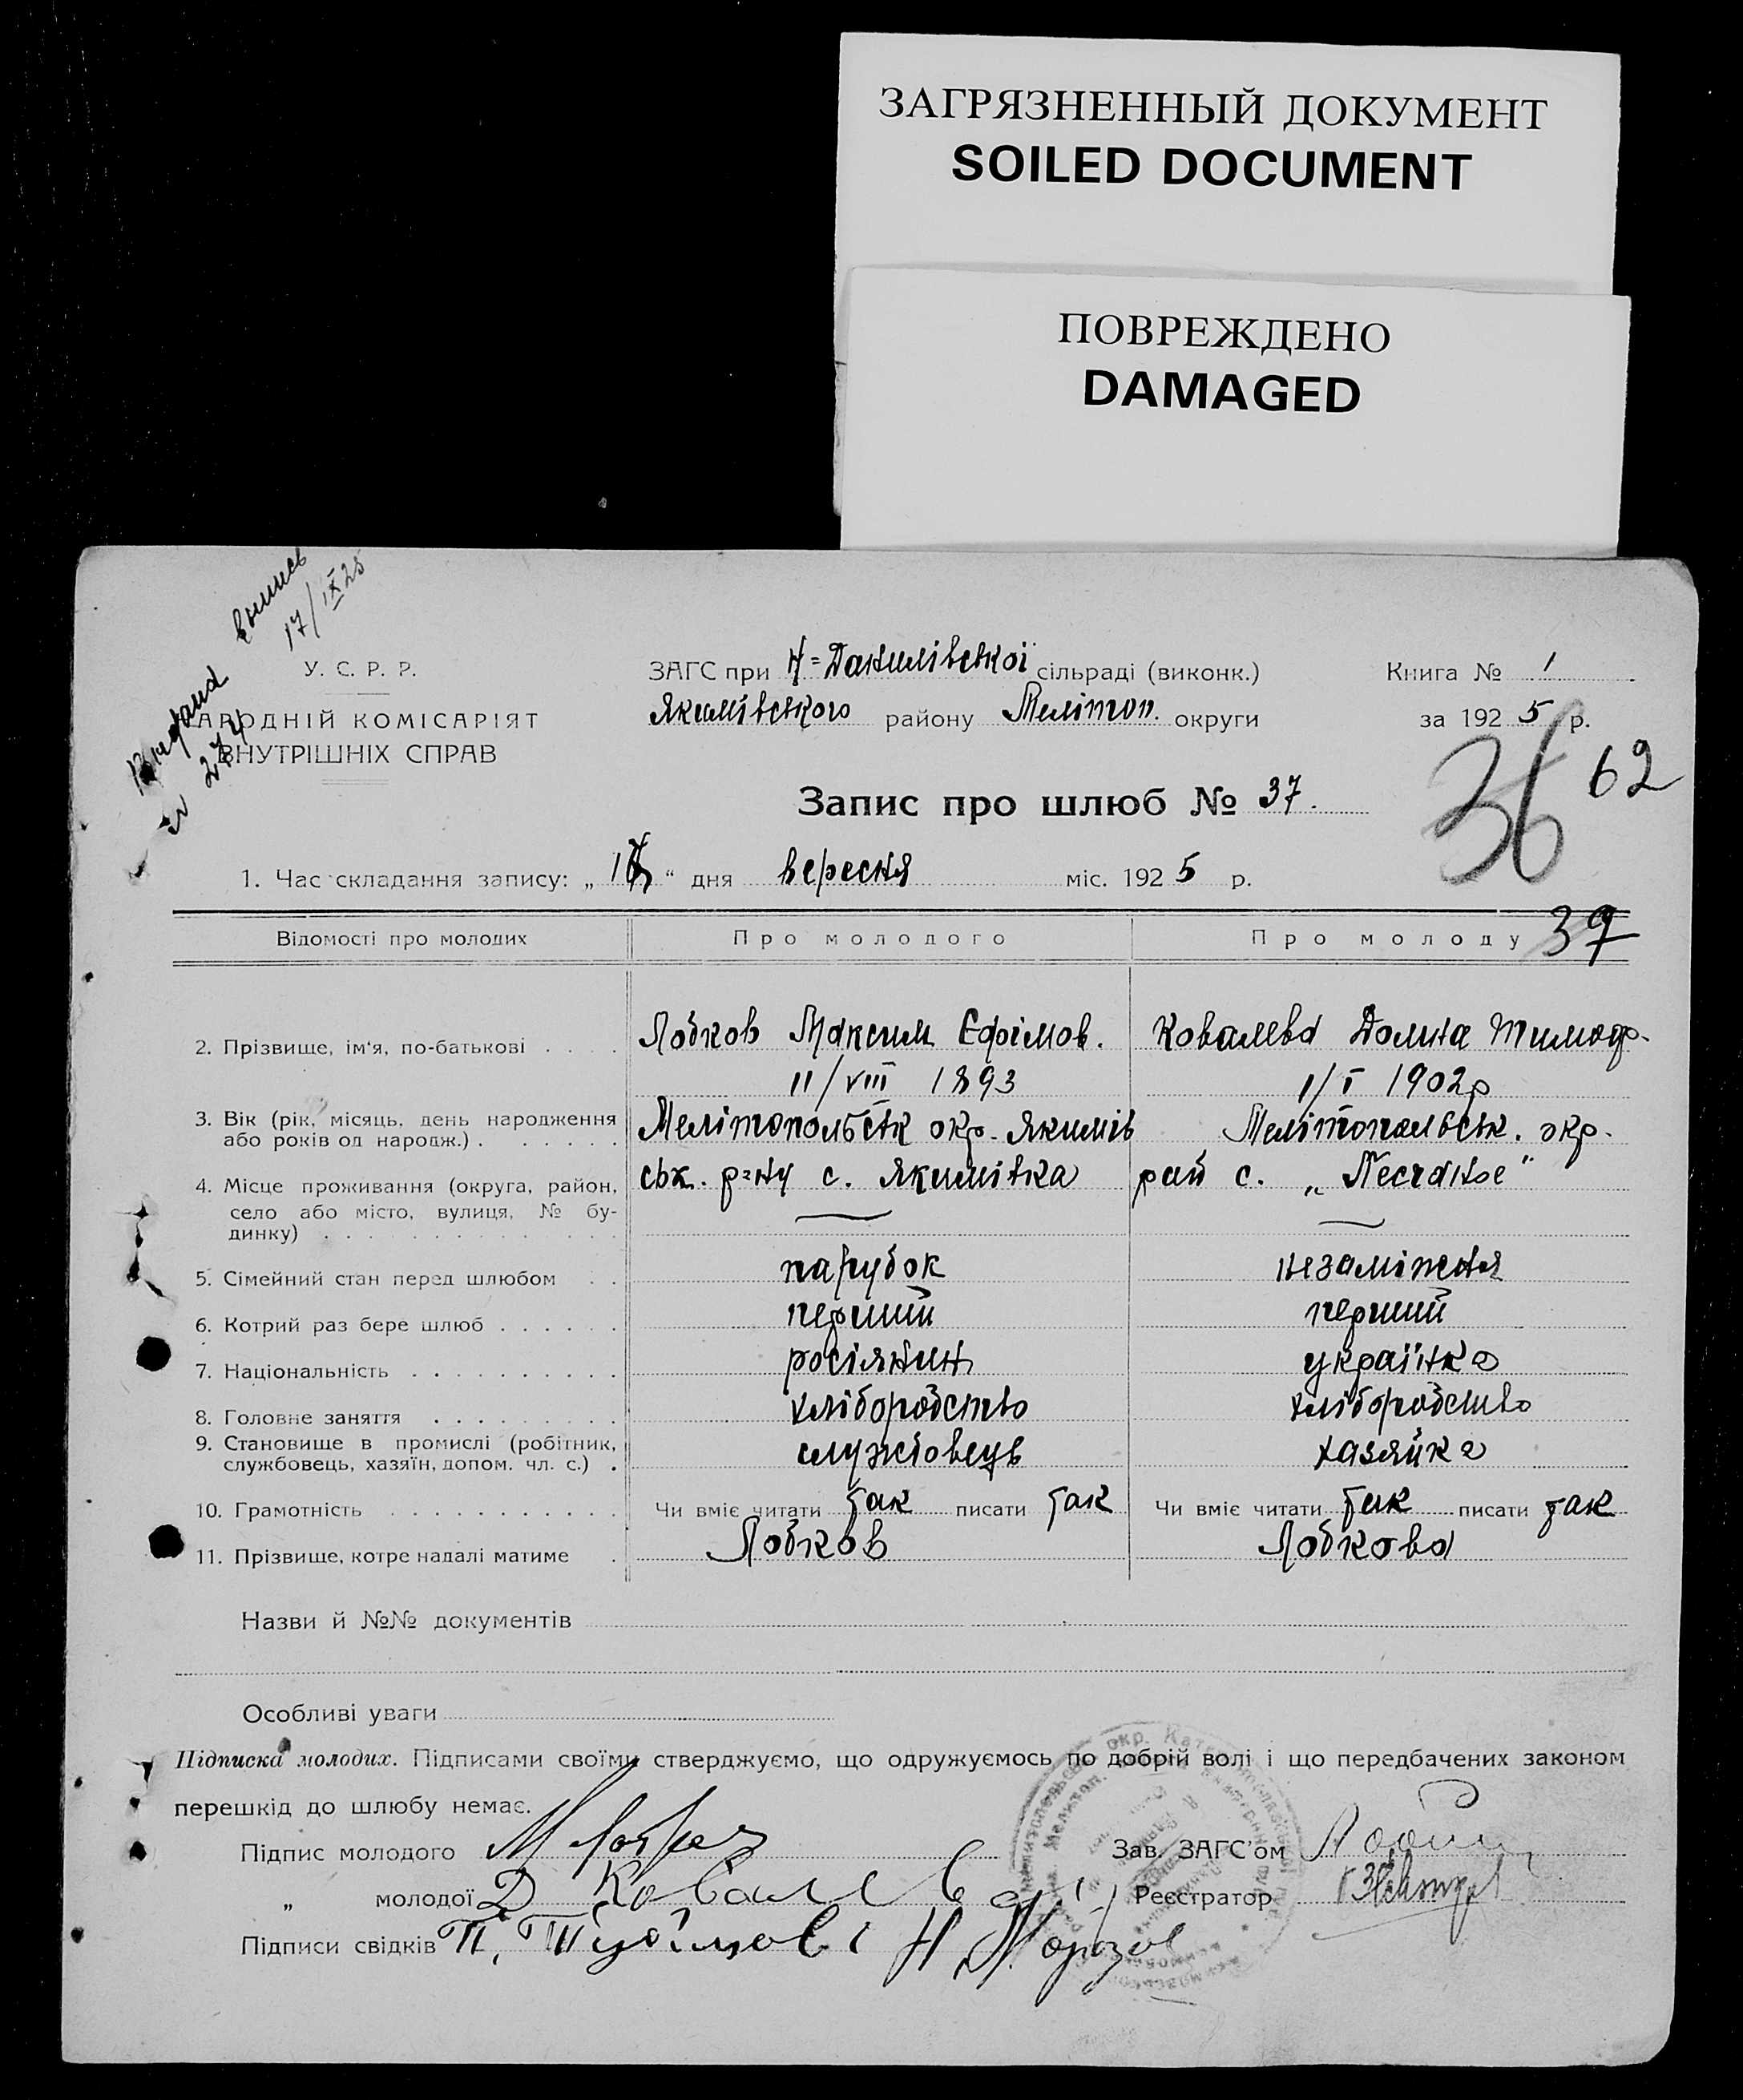 ЗАГРЯЗНЕННЫЙ ДОКУМЕНТ
SOILED DOCUMENT
ПОВРЕЖДЕНО
DAMAGED
выпись
17/IX 25
№ 274
У. С. Р. Р.
АРОДНІЙ КОМІСАРІЯТ
ВНУТРІШНІХ СПРАВ
ЗАГС при Н=Данилівської сільраді (виконк.)
Якимівського району Мелітоп. округи
Книга № 1
за 1925 р.
36 62
Запис про шлюб № 37.
1. Час складання запису: „ “ дня вересня міс. 1925 р.
37
Відомості про молодих Про молодого Про молоду
2. Прізвище, ім'я, по-батькові . . . . Лобков Максим Єфімов. Ковалева Домна Тимоф.
11/VIII 1893 1/I 1902р
3. Вік (рік, місяць, день народження
або років од народж.) . . . . . . Мелітопольськ окр. Якимів Мелітопольськ. окр.
4. Місце проживання (округа, район, ськ. р=ну с. Якимівка рай с.
село або місто, вулиця, № бу-
динку) . . . . . . . . . . . . . .
5. Сімейний стан перед шлюбом . . парубок незаміжня
6. Котрий раз бере шлюб . . . . . . перший перший
7. Національність . . . . . . . . . . росіянин українка
8. Головне заняття . . . . . . . . . хліборобство хліборобство
9. Становище в промислі (робітник,
службовець, хазяїн, допом. чл. с.) . службовець хазяйка
10. Грамотність . . . . . . . . . . . Чи вміє читати так писати так Чи вміє читати так писати так
11. Прізвище, котре надалі матиме . Лобков Лобкова
Назви й №№ документів
Особливі уваги
Підписка молодих. Підписами своїми стверджуємо, що одружуємось по добрій волі і що передбачених законом
перешкід до шлюбу немає.
Підпис молодого М Зав. ЗАГС'ом
„ молодої Д Ковалева Реєстратор
Підписи свідків П. Н